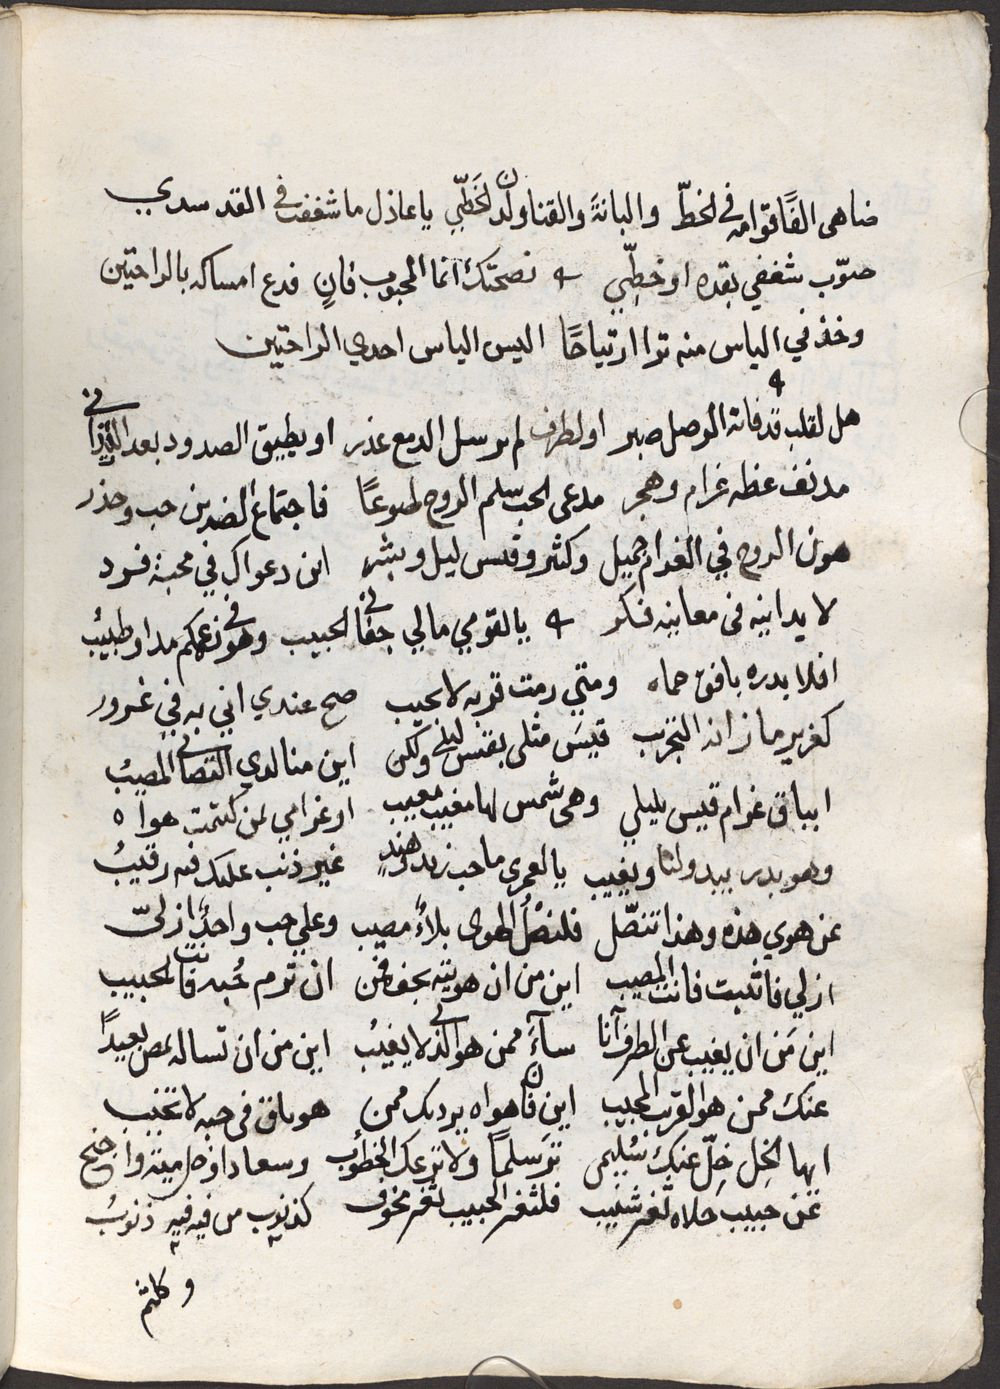 ضاهى الفًا قوّامه في الخطّ والبانةَ والقنا ولدن الخَطّي يا عاذل ما شغفت في القد سدي
صوّب شغفي بقده او خطّي ؎ نصحتك انما المحبوب فانٍ فدع امساكه بالراحتين
وخذ في الياس منه ترا ارتياحًا اليس الياس احدى الراحتين
هل لقلب قد فاته الوصل صبر او لطرف لم يرسل الدمع عذر او يطيق الصدود بعد التداني
مدنف غظه غرام وهجر مدعى الحب سلم الروح طوعًا فاجتماع الضدين حب وحذر
هون الروح في الغرام جميل وكثر وقيس ليل وبشر اين دعواك في محبة فرد
لا يدانيه في معانيه فكر ؎ يا لقومي مالي جفاني الحبيب وهو في زعمكم مداو طبيبُ
افلا بدره بافق حماه ومتي رمت قربه لا يجيب صح عندي اني به في غرور
كغرير ما زانه التجريب قيسَ مثلى بقيس ليلى ولكن اين منا لدي التصافي المصيبُ
ايباق غرام قيس بليلي وهى شمس لها مغيب معيب او غرامي لمن كتمت هواه
وهو بدر يبدو لنا ويغيب يا لعمرى ما حب زيد وهندٍ غير ذنب عليك فيه رقيبُ
عن هوي هذه وهذا تنصّل فلنصْلُ الهوى بلاءً مصيب وعلي حب واحدٍ ازليّ
ازلي فاثبت فانت المصيب اين من ان هويته يجف من ان ترم حُبه فانت الحبيب
اين مَن ان يغيب عن الطرف آنا سآءَ ممن هو الذي لا يغيبُ اين من ان تساله يمض بعيدًا
عنك ممن هو القريب المجيب اين فان هواه يرديك ممن هو باق في حبه لا تخيب
ايها الخِل خِلّ عنكَ سُليمى ترَ سلمًا ولا ترعك الخطوب وسعاد اوصل مية واجنح
عن حبيب حَلاه ثغر شنيب فلثغر الحبيب ثغر مخوف كذنوب من فيه فيهِ ذنوبُ
وكلتم